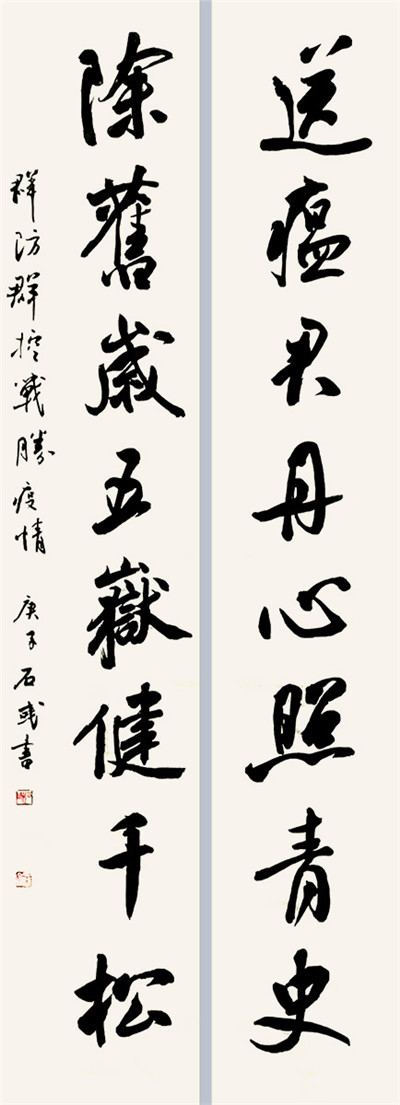 送瘟君丹心照青史
除舊歲五嶽健千松
群防群控戰勝疫情 庚子石或書